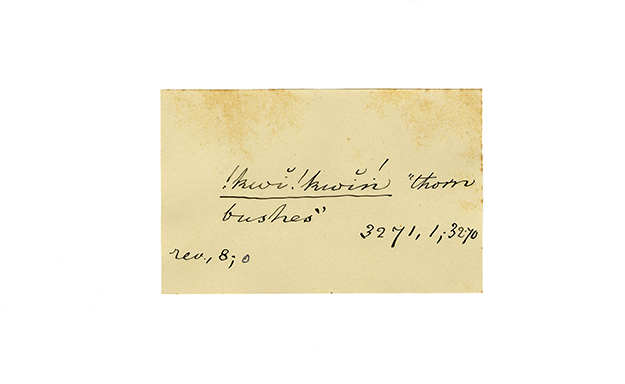 !kwĭ!kwĭń "thorn
bushes"
3271, 1; 3270
rev., 8; 0